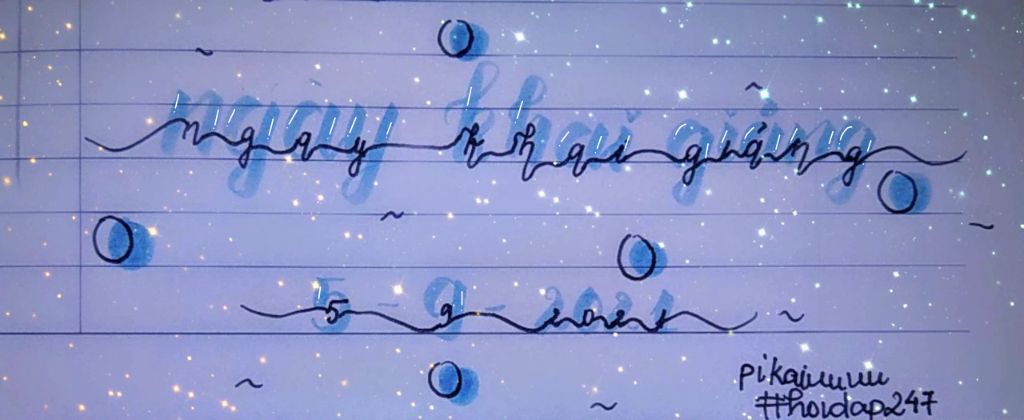 ngày khai giảng
5 - 9 - 2021
pikaiuuuu
#hoidap247